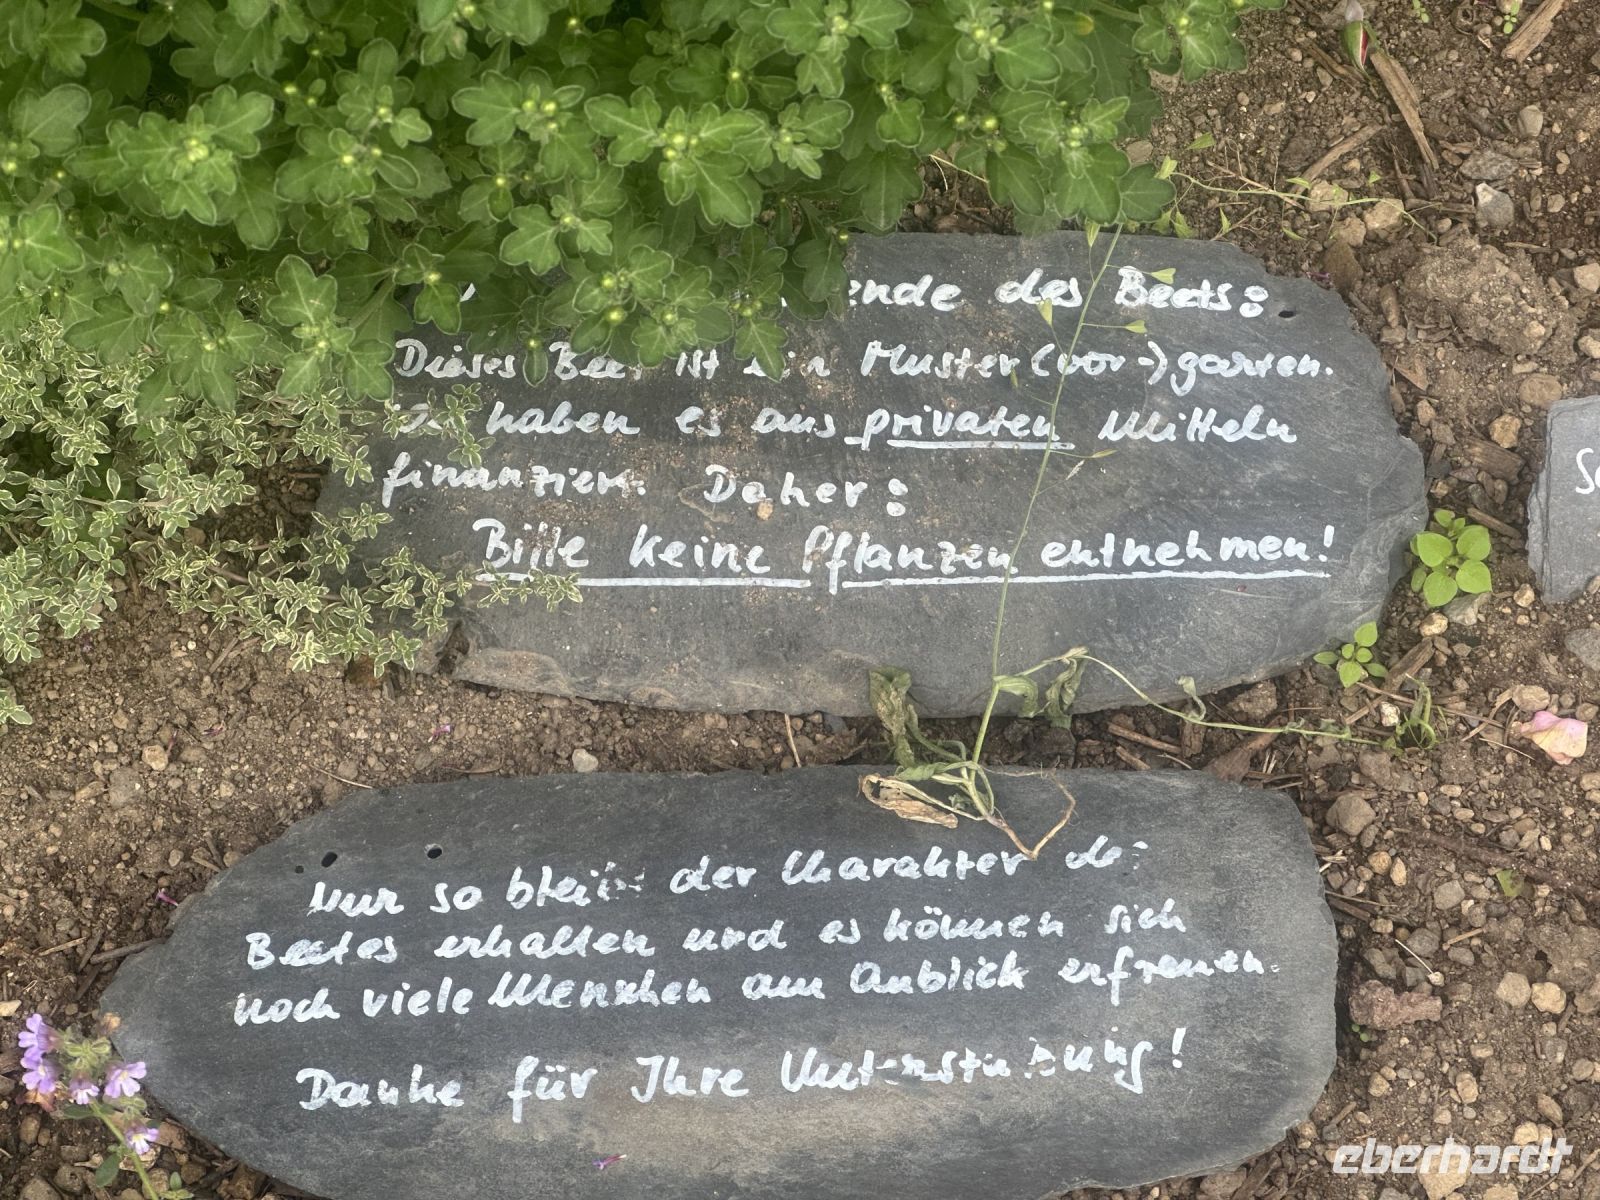 des Beets:
Dieses Beet ist ein Muster(vor-)garten.
haben es aus privaten Mitteln
finanziert. Daher:
Bitte keine Pflanzen entnehmen!
Nur so bleibt der Charakter des
Beetes erhalten und es können sich
noch viele Menschen am Anblick erfreuen.
Danke für Ihre Unterstützung!
eberhardt